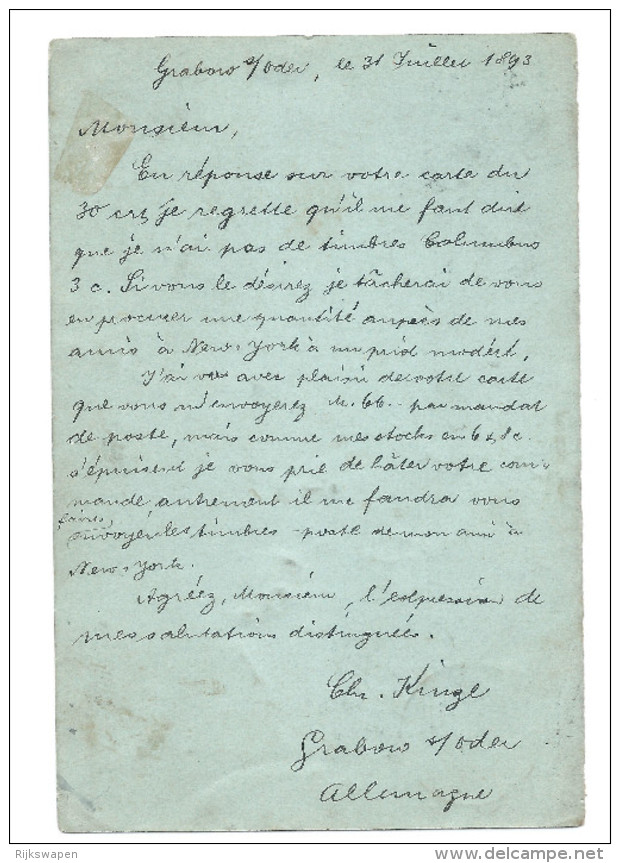 Grabow s/Oder, le 31 Juillet 1893
Monsieur,
En réponse sur votre carte du
30 crt, je regrette qu'il me faut dire
que je n'ai pas de timbres Columbus
3 c. Si vous le désirez je tâcherai de vous
en procurer une quantité auprès de mes
amis à New-York à un prix modéré.
J'ai vu avec plaisir de votre carte
que vous m'envoyerez M. 66.- par mandat
de poste, mais comme mes stocks en 6 & 8 c.
s'épuisent je vous prie de hâter votre com-
mande autrement il me faudra vous
faire
envoyer les timbres-poste de mon ami à
New-York.
Agréez, Monsieur, l'expression de
mes salutations distinguées.
Chr. Kinze
Grabow s/Oder
Allemagne
Rijkswapen
delcampe.net